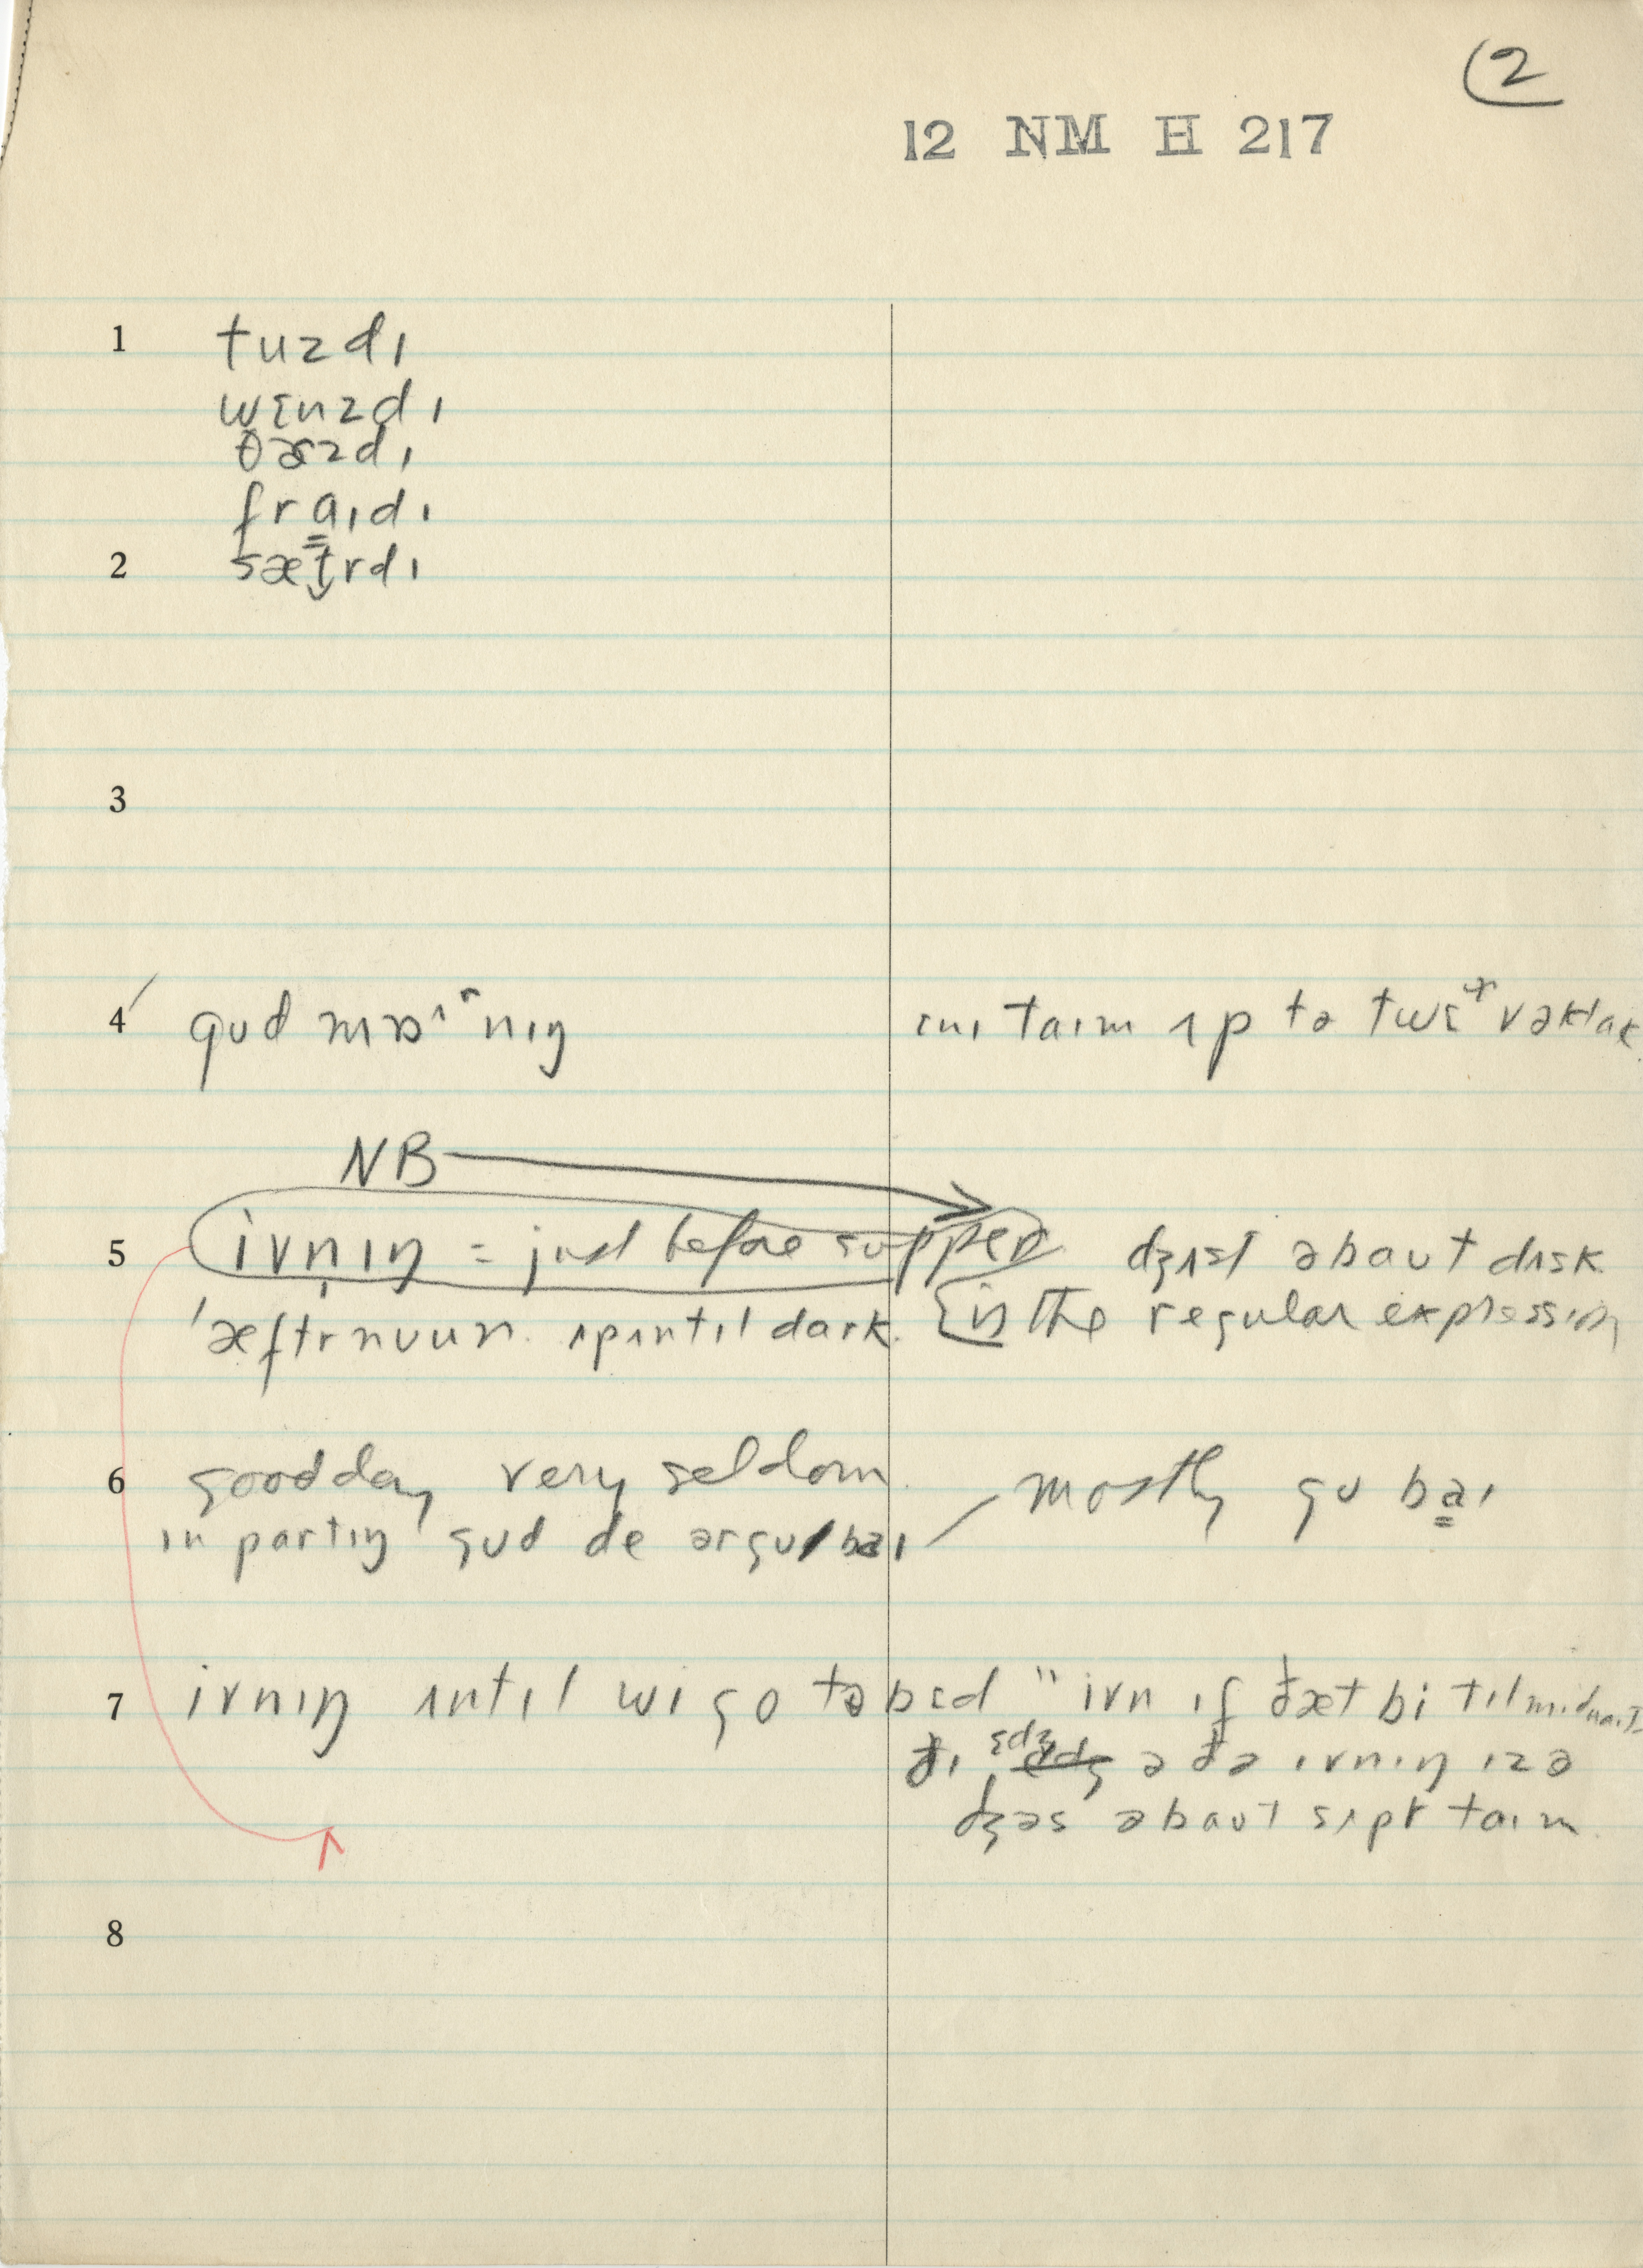 2
12 NM H 217
1 tuzdɪ
wɛnzdɪ
θɚzdɪ
fra̳ɪdɪ
2 sæt̬rdɪ
3
4 gʊd mɒʌʳnɪŋ
ɛnɪ taɪm ʌp tə twɛˡvəklɑk
NB
5 ivn̩ɪŋ = just before supper
dʒʌst əbaʊt dʌsk
ˈæftrnuun. ʌpʌntɪl dark.
is the regular expression
6 good day very seldom
mostly gʊ ba̳ɪ
ɪn partɪŋ gʊd de ərgʊbaɪ
7 ivnɪŋ ʌntɪl wɪ go tə bɛd " ivn ɪf ðæt bi tɪl mɪdnaɪt
ðɪ ɛdʒ ə ðə ivnɪŋ ɪz ə
dʒəs əbaʊt sʌpr taɪm
8